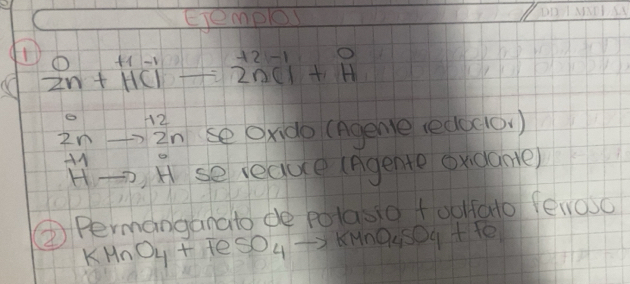 Ejemplos
① 0 +1 -1 +2 -1 0
Zn + HCl → ZnCl + H
0 +2
Zn → Zn se oxido (Agente reductor)
+1 0
H → H se reduce (Agente oxidante)
② Permanganato de potasio + sulfato ferroso
KMnO4 + FeSO4 → KMnO4SO4 + Fe